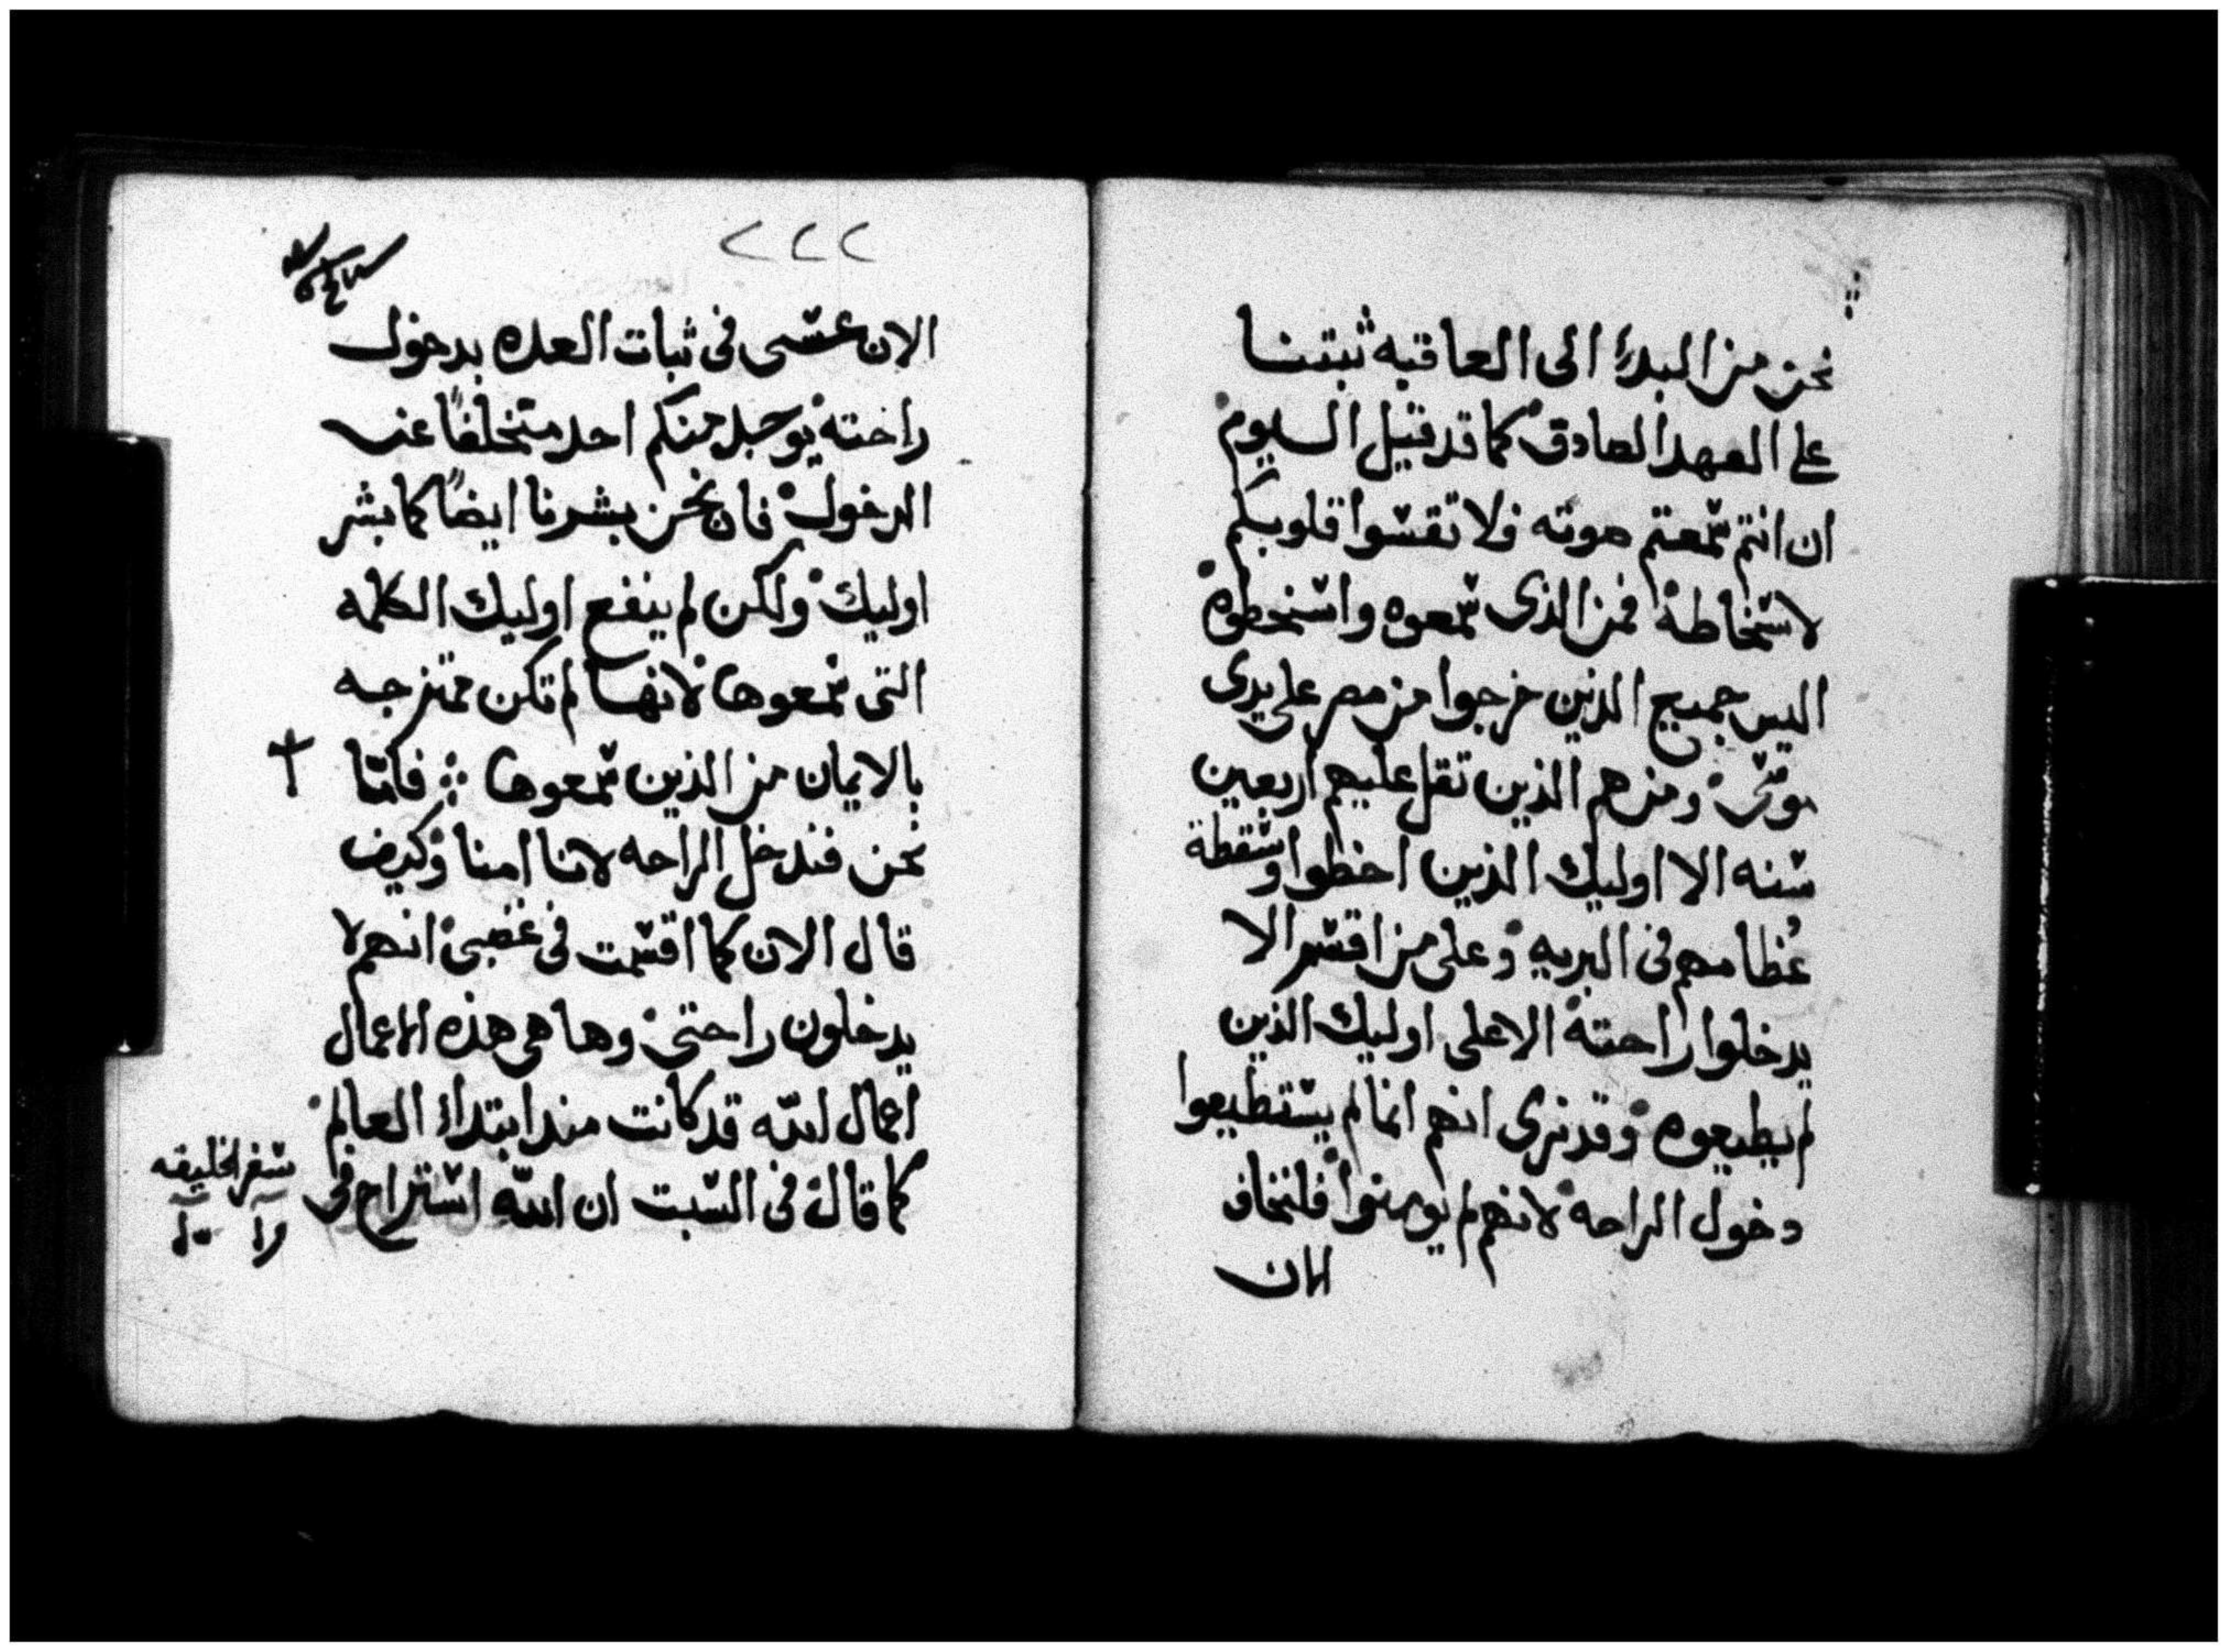 نحن من البدء الى العاقبه ثبتنا
على العهد الصادق كما قد قيل اليوم
ان انتم سمعتم صوته فلا تقسوا قلوبكم
لاسخاطه فمن الذى سمعوه واسخطوه
اليس جميع الذين خرجوا من مصر على يدى
موسى ومن هم الذين ثقل عليهم اربعين
سنه الا اوليك الذين اخطوا وسقطة
عظامهم فى البريه وعلى من اقسم الا
يدخلوا راحته الا على اوليك الذين
لم يطيعوه وقد نرى انهم انما لم يستطيعوا
دخول الراحه لانهم لم يومنوا فلنخاف
الان
٢٢٢
الان عسى فى ثبات العده بدخول
راحته يوجد منكم احد متخلفاً عن
الدخول فان نحن بشرنا ايضاً كما بشر
اوليك ولكن لم ينفع اوليك الكلمه
التى سمعوها لانها لم تكن ممتزجه
بالايمان من الذين سمعوها فامّا
نحن فندخل الراحه لاننا امنا وكيف
قال الان كما اقسمت فى غضبى انهم لا
يدخلون راحتى وها هى هذه الاعمال
اعمال الله قد كانت منذ ابتداء العالم
كما قال فى السبت ان الله استراح فى
سفر الخليقه